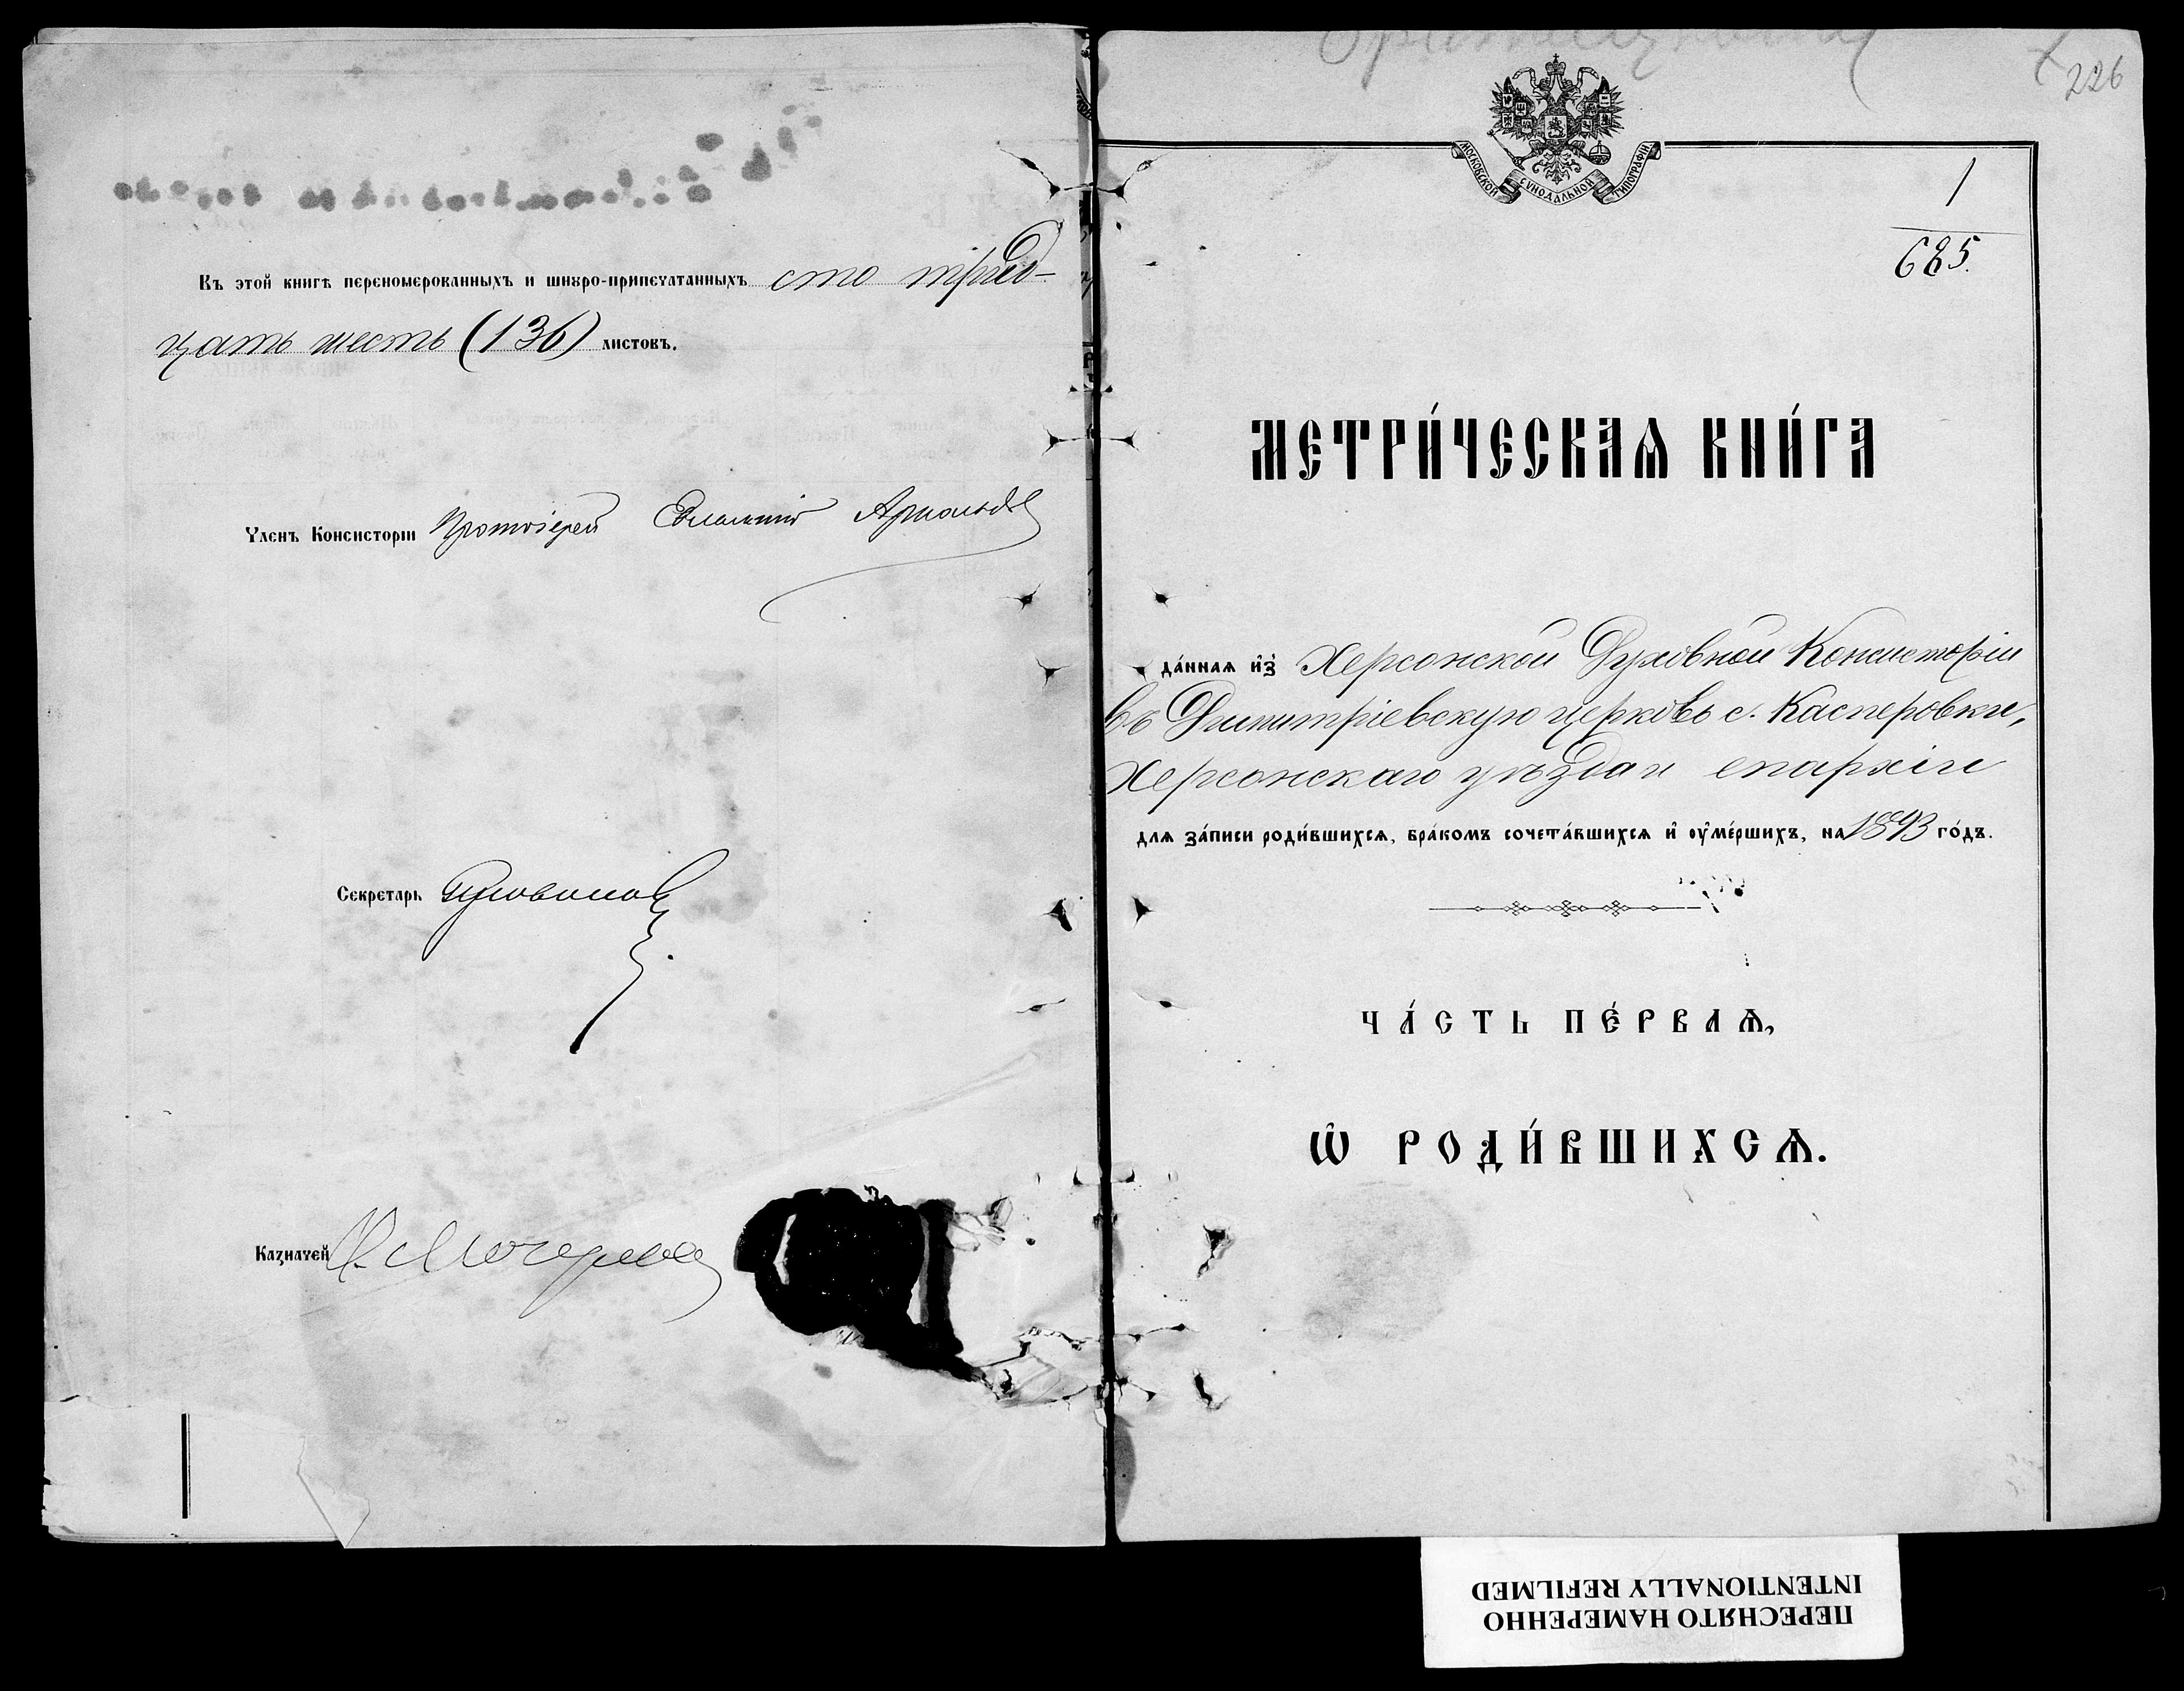 Въ этой книгѣ переномерованныхъ и шнуро-припечатанныхъ сто трид-
цать шесть (136) листовъ.
Членъ Консисторіи Протоіерей Арнольдов
Секретарь
Казначей
226
МОСКОВСКОЙ СѴНОДАЛЬНОЙ ТИПОГРАФІИ
1
685.
МЕТРИ́ЧЕСКАѦ КНИ́ГА
да́ннаѧ и҆з̾ Херсонской Духовной Консисторіи
въ Димитріевскую церковь с. Касперовки,
Херсонскаго уѣзда и епархіи
длѧ за́писи роди́вшихсѧ, бра́комъ сочета́вшихсѧ и҆ оу҆ме́ршихъ, на 1893 го́дъ.
ЧА́СТЬ ПЕ́РВАѦ,
Ѡ҆ РОДИ́ВШИХСѦ.
ПЕРЕСНЯТО НАМЕРЕННО
INTENTIONALLY REFILMED